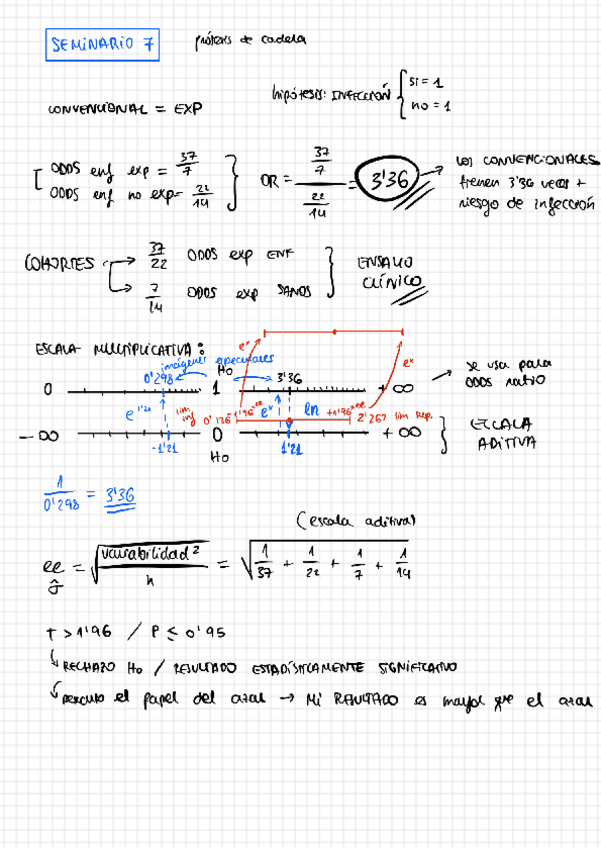 SEMINARIO 7 prótesis de cadera
hipótesis: INFECCIÓN { SI = 1
no = 1
CONVENCIONAL = EXP
ODDS enf exp = 37/7
ODDS enf no exp = 22/14
OR = 37/7 / 22/14 = 3'36 → LOS CONVENCIONALES
tienen 3'36 veces +
riesgo de infección
COHORTES → 37/22 ODDS exp ENF
→ 7/14 ODDS exp SANOS
ENSAYO
CLÍNICO
ESCALA MULTIPLICATIVA:
imágenes especulares
0 0'298 Ho 1 3'36 + ∞ → se usa para
ODDS ratio
e^x e^x
e^1'21 lim inf 0'136 -1'96 ee e^x ln +1'96 ee 2'267 lim sup.
- ∞ -1'21 0 Ho 1'21 + ∞ } ESCALA
ADITIVA
1/0'298 = 3'36
(escala aditiva)
ee = √ variabilidad²/n = √ 1/37 + 1/22 + 1/7 + 1/14
t > 1'96 / P ≤ 0'95
↳ RECHAZO Ho / RESULTADO ESTADÍSTICAMENTE SIGNIFICATIVO
↳ el papel del azar → MI RESULTADO es mayor que el azar